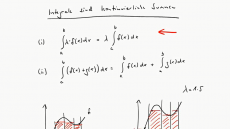 Integrale sind kontinuierliche Summen
(i) ∫_a^b λ·f(x)dx = λ ∫_a^b f(x)dx
(ii) ∫_a^b (f(x)+g(x))dx = ∫_a^b f(x)dx + ∫_a^b g(x)dx
λ=1.5